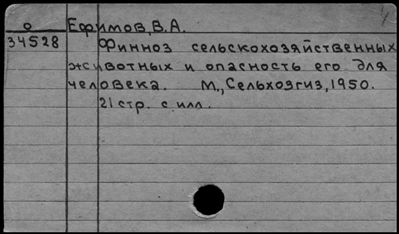 о Ефимов, В.А.
34528 Финноз сельскохозяйственных
животных и опасность его для
человека. М., Сельхозгиз, 1950.
21 стр. с илл.